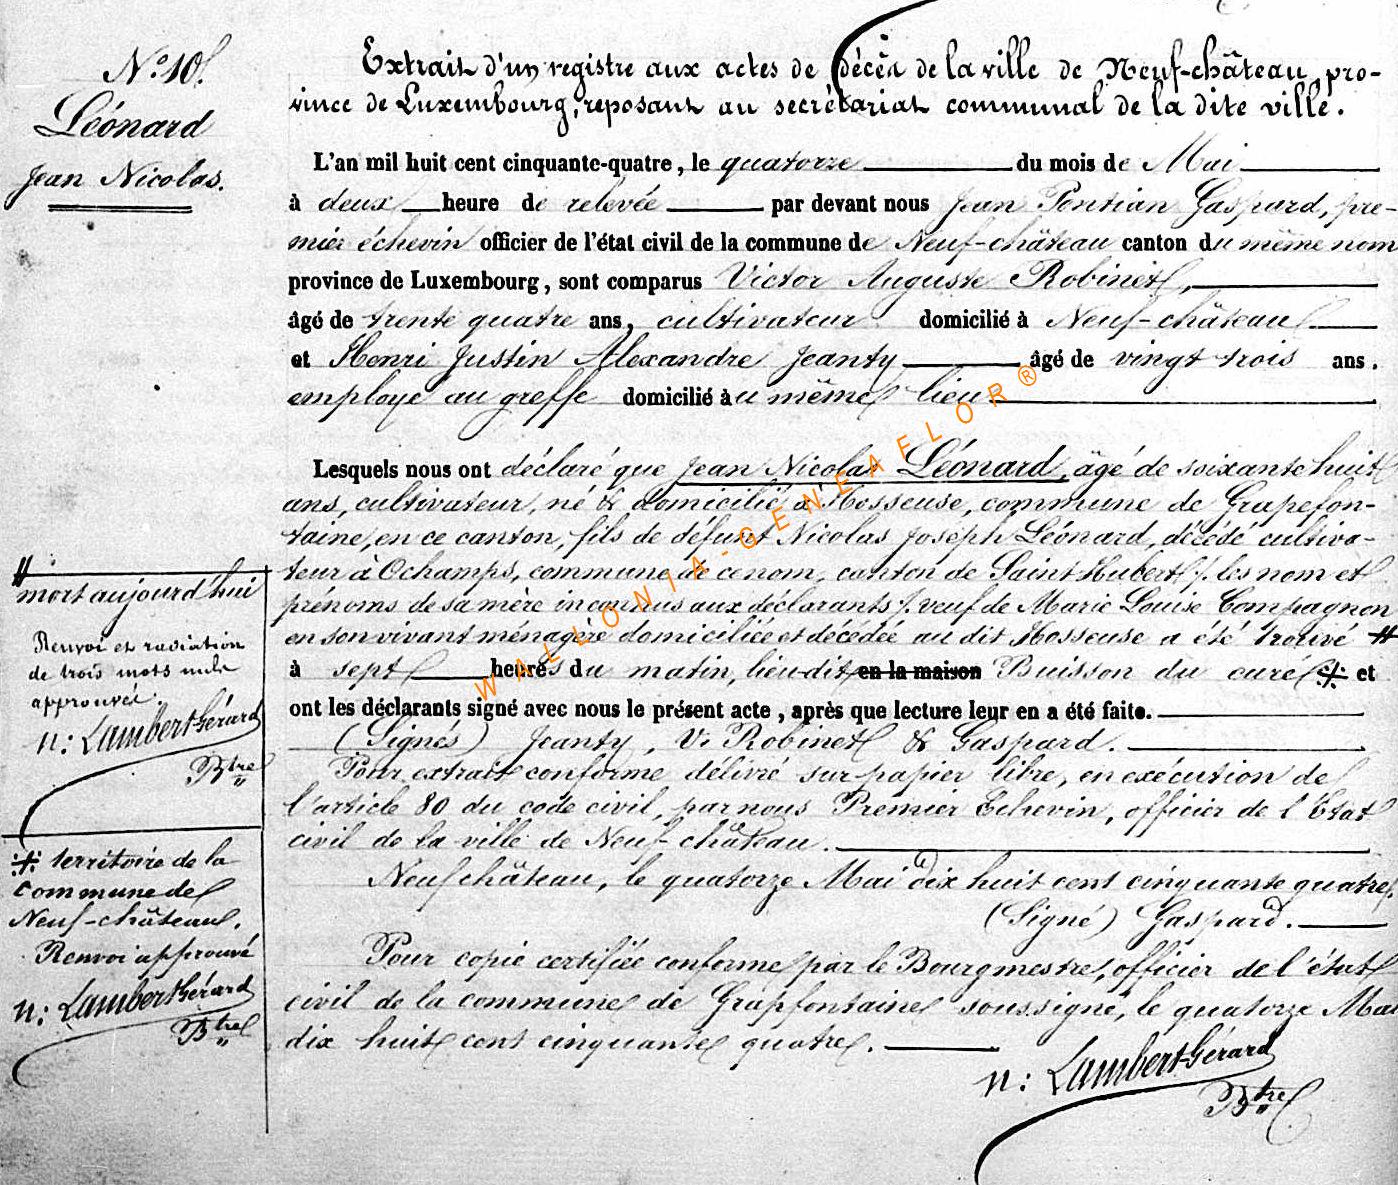 N.º 10.
Léonard
Jean Nicolas.
Extrait d'un registre aux actes de décès de la ville de Neuf-château, pro-
vince de Luxembourg, reposant au secrétariat communal de la dite ville.
L'an mil huit cent cinquante-quatre, le quatorze du mois de Mai
à deux heure de relevée par devant nous Jean Pontian Gaspard, pre-
mier échevin officier de l'état civil de la commune de Neuf-château canton du même nom
province de Luxembourg, sont comparus Victor Auguste Robinet,
âgé de trente quatre ans, cultivateur domicilié à Neuf-château
et Henri Justin Alexandre Jeanty âgé de vingt trois ans.
employé au greffe domicilié au même lieu
Lesquels nous ont déclaré que Jean Nicolas Léonard, âgé de soixante huit
ans, cultivateur, né & domicilié à Hosseuse, commune de Grapefon-
taine, en ce canton, fils de défunt Nicolas Joseph Léonard, décédé cultiva-
teur à Ochamps, commune de ce nom, canton de Saint-Hubert /. les nom et
prénoms de sa mère inconnus aux déclarants /. veuf de Marie Louise Compagnon
en son vivant ménagère domiciliée et décédée au dit Hosseuse a été trouvé #
à sept heures du matin, lieu dit en la maison Buisson du curé ⁜ et
ont les déclarants signé avec nous le présent acte, après que lecture leur en a été faite.
(Signés) Jeanty, V. Robinet & Gaspard.
Pour extrait conforme délivré sur papier libre, en exécution de
l'article 80 du code civil, par nous Premier Echevin, officier de l'Etat
civil de la ville de Neuf-château.
Neufchâteau, le quatorze Mai dix huit cent cinquante quatre.
(Signé) Gaspard.
Pour copie certifiée conforme par le Bourgmestre, officier de l'état
civil de la commune de Grapfontaine soussigné, le quatorze Mai
dix huit cent cinquante quatre.
n: Lambert-Gérard
Btre
# mort aujourd'hui
Renvoi et radiation
de trois mots nuls
approuvés.
n: Lambert-Gérard
Btre
⁜ territoire de la
commune de
Neuf-château.
Renvoi approuvé
n: Lambert-Gérard
Btre
WALLONIA-GENEAFLOR®